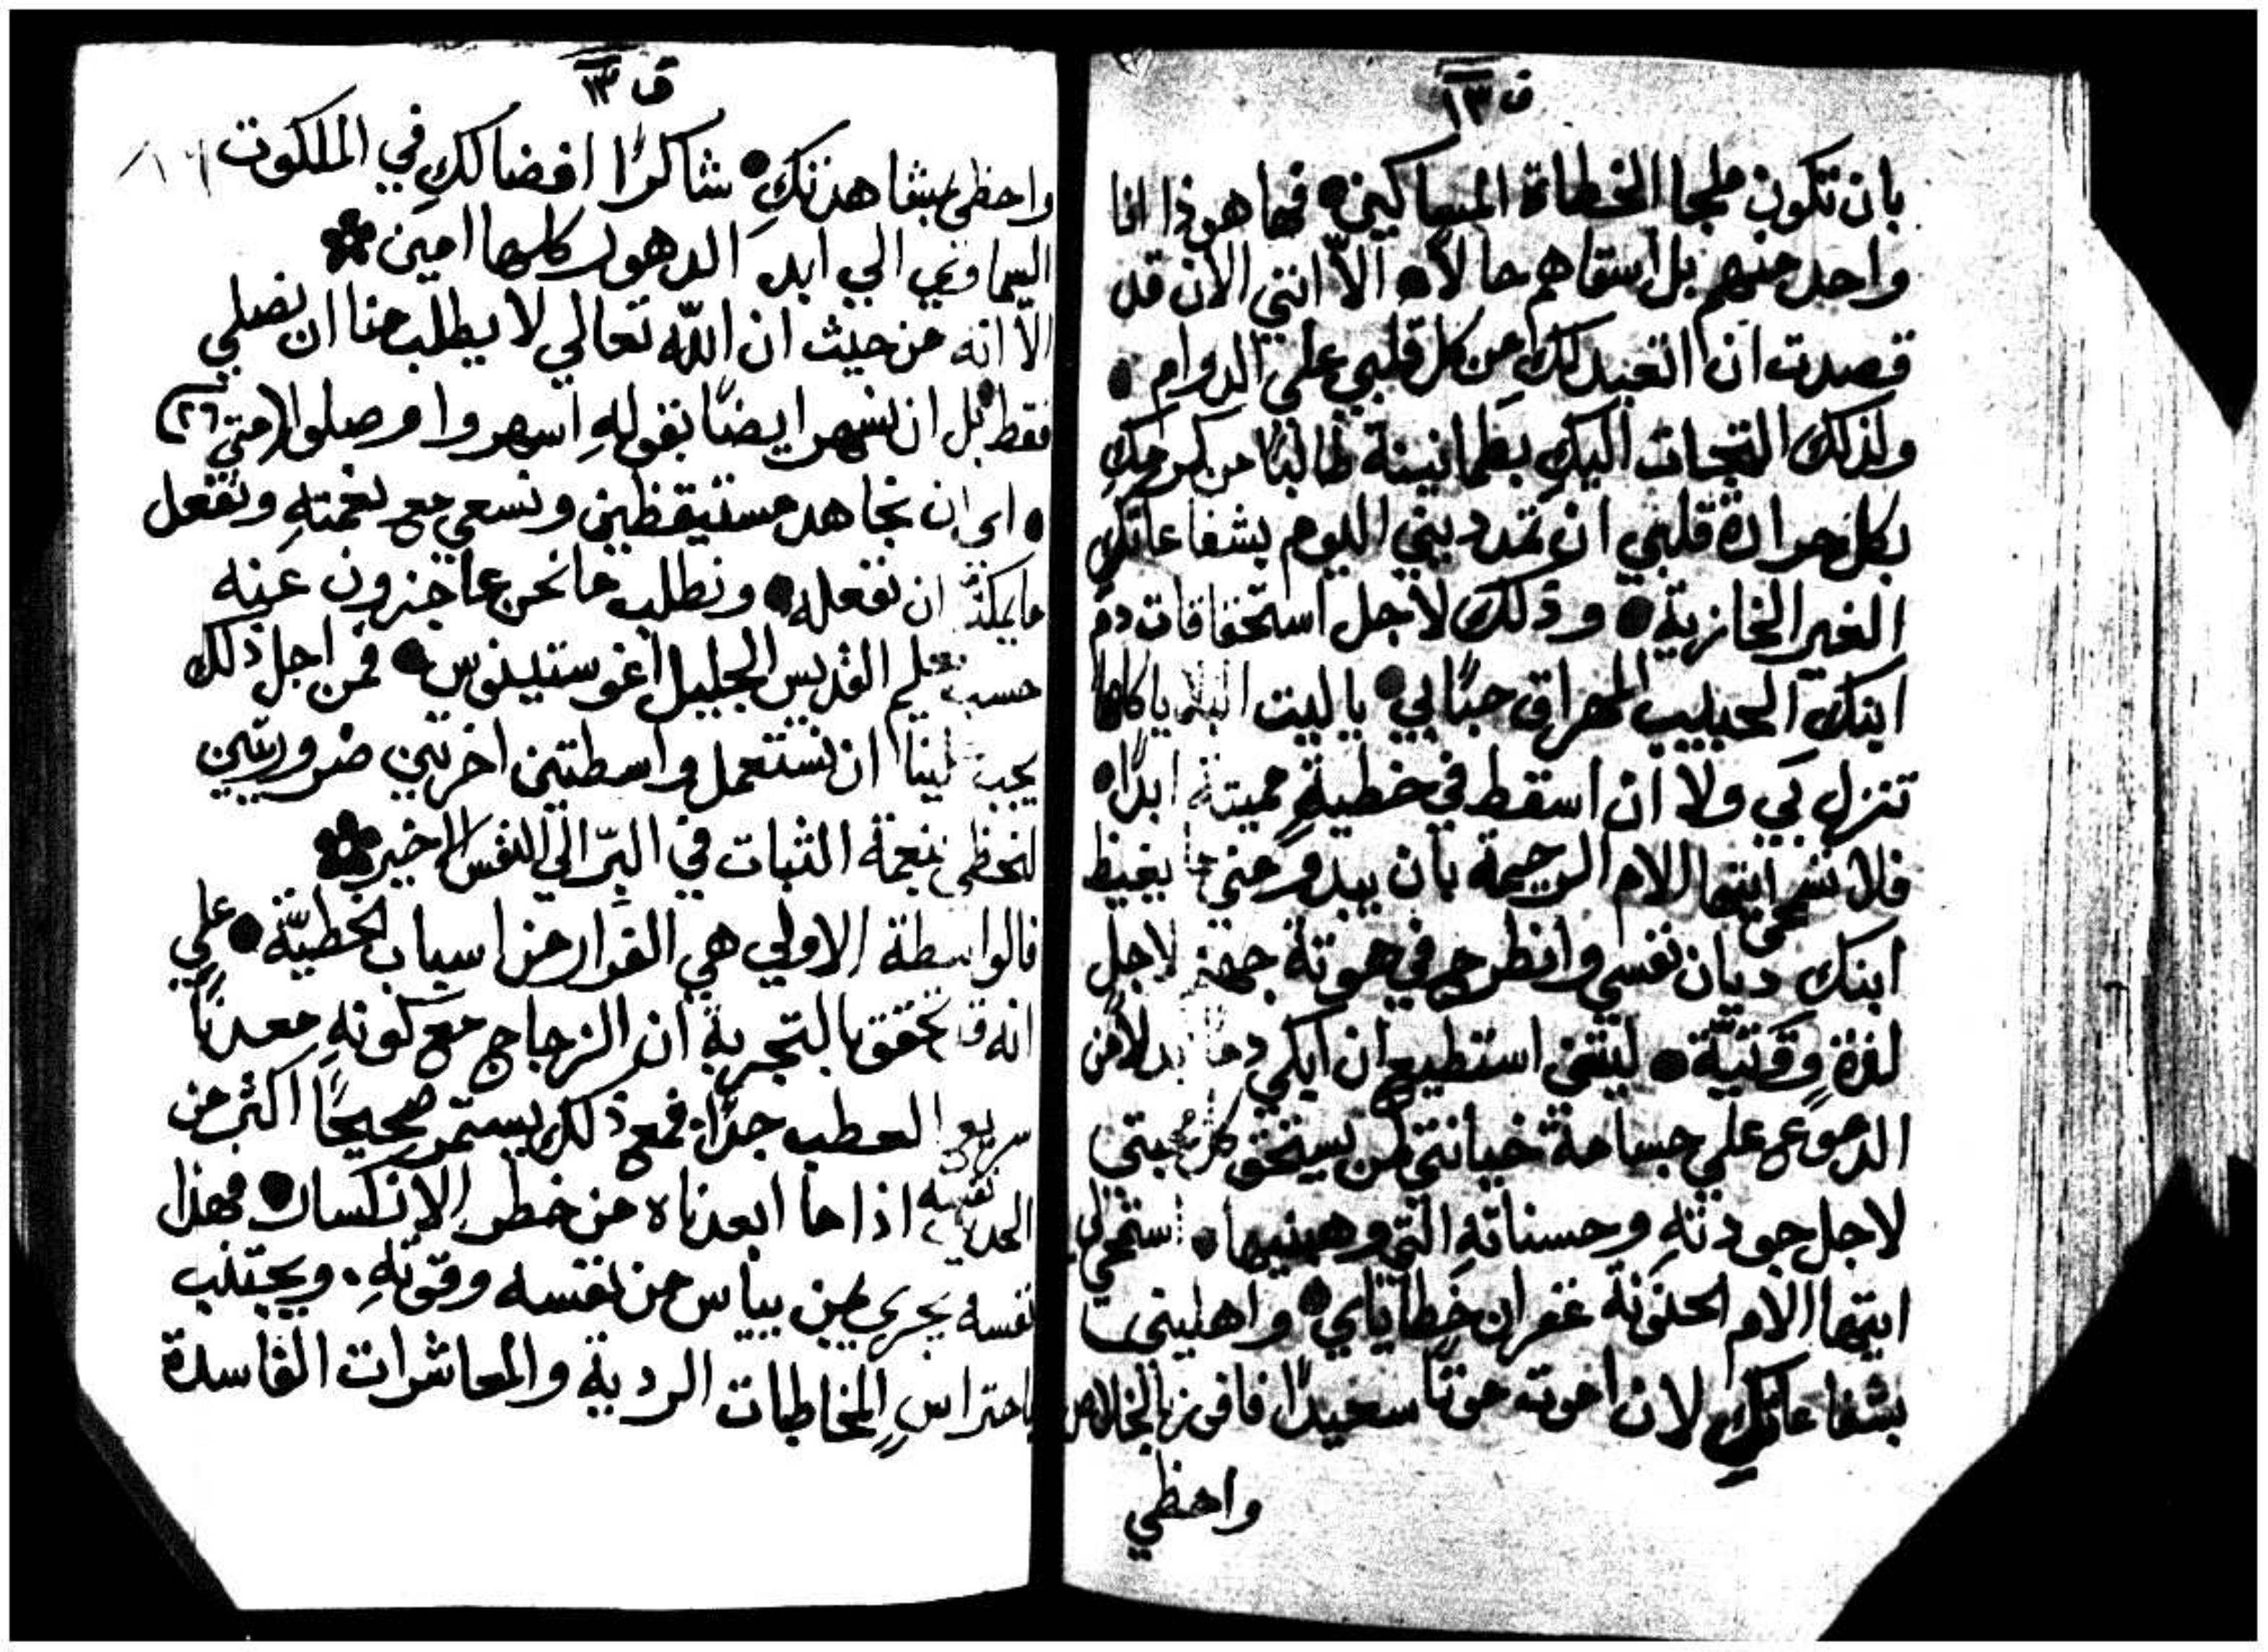 ف ١٣
بان تكون ملجا الخطاة المساكين • فها هوذا انا
واحد منهم بل اشقاهم حالاً • الاّ انني الان قد
قصدت ان اتعبد لكِ من كل قلبي علي الدوام •
ولذلك التجات اليكِ بطمانينة طالبًا من كرمكِ
بكل حرارة قلبي ان تمدديني اليوم بشفاعاتكِ
الغير الخازية • وذلك لاجل استحقاقات دم
ابنك الحبيب المهراق حبًا بي • يا ليت البلايا كلها
تنزل بي ولا ان اسقط في خطيةٍ مميتة ابدًا •
فلا تسمحي ايتها الام الرحيمة بان يبدو مني ما يغيظ
ابنك ديان نفسي وانطرح في هوتة جهنم لاجل
لذةٍ وقتيّة • ليتني استطيع ان ابكي دمًا بدلاً من
الدموع علي جسامة خيانتي لمن يستحق كل محبتي
لاجل جودتهِ وحسناتهِ التي وهبنيها • استمحي لي
ايتها الام الحنونة غفران خطاياي • واهليني
بشفاعاتكِ لان اموت موتًا سعيدًا فافوز بالخلاص
واحظي
ف ١٣
واحظي بمشاهدتكِ • شاكرًا افضالكِ في الملكوت
السماوي الي ابد الدهور كلها امين
الاّ انه من حيث ان اللّه تعالي لا يطلب منا ان نصلي
فقط بل ان نسهر ايضًا بقولهِ اسهروا وصلوا (متي ٢٦)
• اي ان نجاهد مستيقظين ونسعي مع نعمتهِ ونفعل
ما يمكنّا ان نفعله • ونطلب ما نحن عاجزون عنه
حسب تعليم القديس الجليل اغوستينوس • فمن اجل ذلك
يجب علينا ان نستعمل واسطتين اخرتين ضروريتين
لنحظي بنعمة الثبات في البرّ الي النفس الاخير
فالواسطة الاولي هي الفرار من اسباب الخطيّة • علي
انه قد تحقق بالتجربة ان الزجاج مع كونهِ معدنًا
سريع العطب جدًا فمع ذلك يستمر صحيحًا اكثر من
الحديد نفسه اذا ما ابعدناه من خطر الانكسار • فهذا
نفسه يجري لمن يياس من نفسه وقوتهِ • ويجتنب
باحتراسٍ المخاطبات الردية والمعاشرات الفاسدة